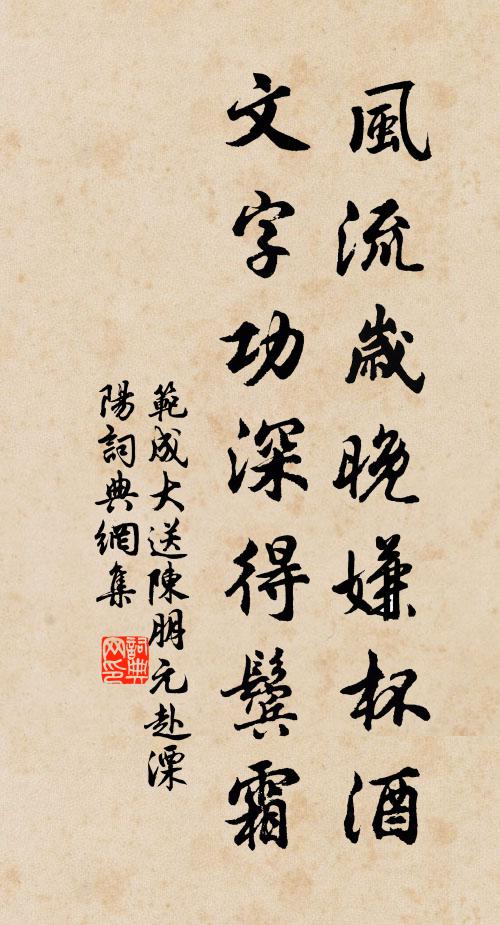 風流歲晚嫌杯酒
文字功深得鬢霜
範成大送陳朋元赴溧
陽詞典網集
詞典
网印